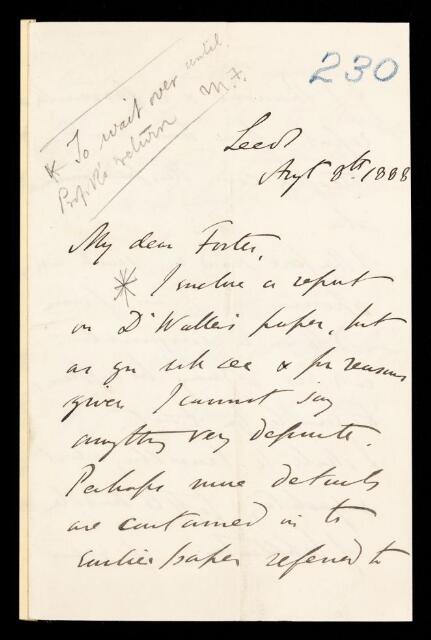 230
* To wait over until
Prof R's return M.F.
Leeds
Augt 8th 1888
My dear Foster,
* I enclose a report
on Dr Waller's paper, but
as you will see & for reasons
given I cannot say
anything very definite.
Perhaps more details
are contained in the
earlier paper referred to